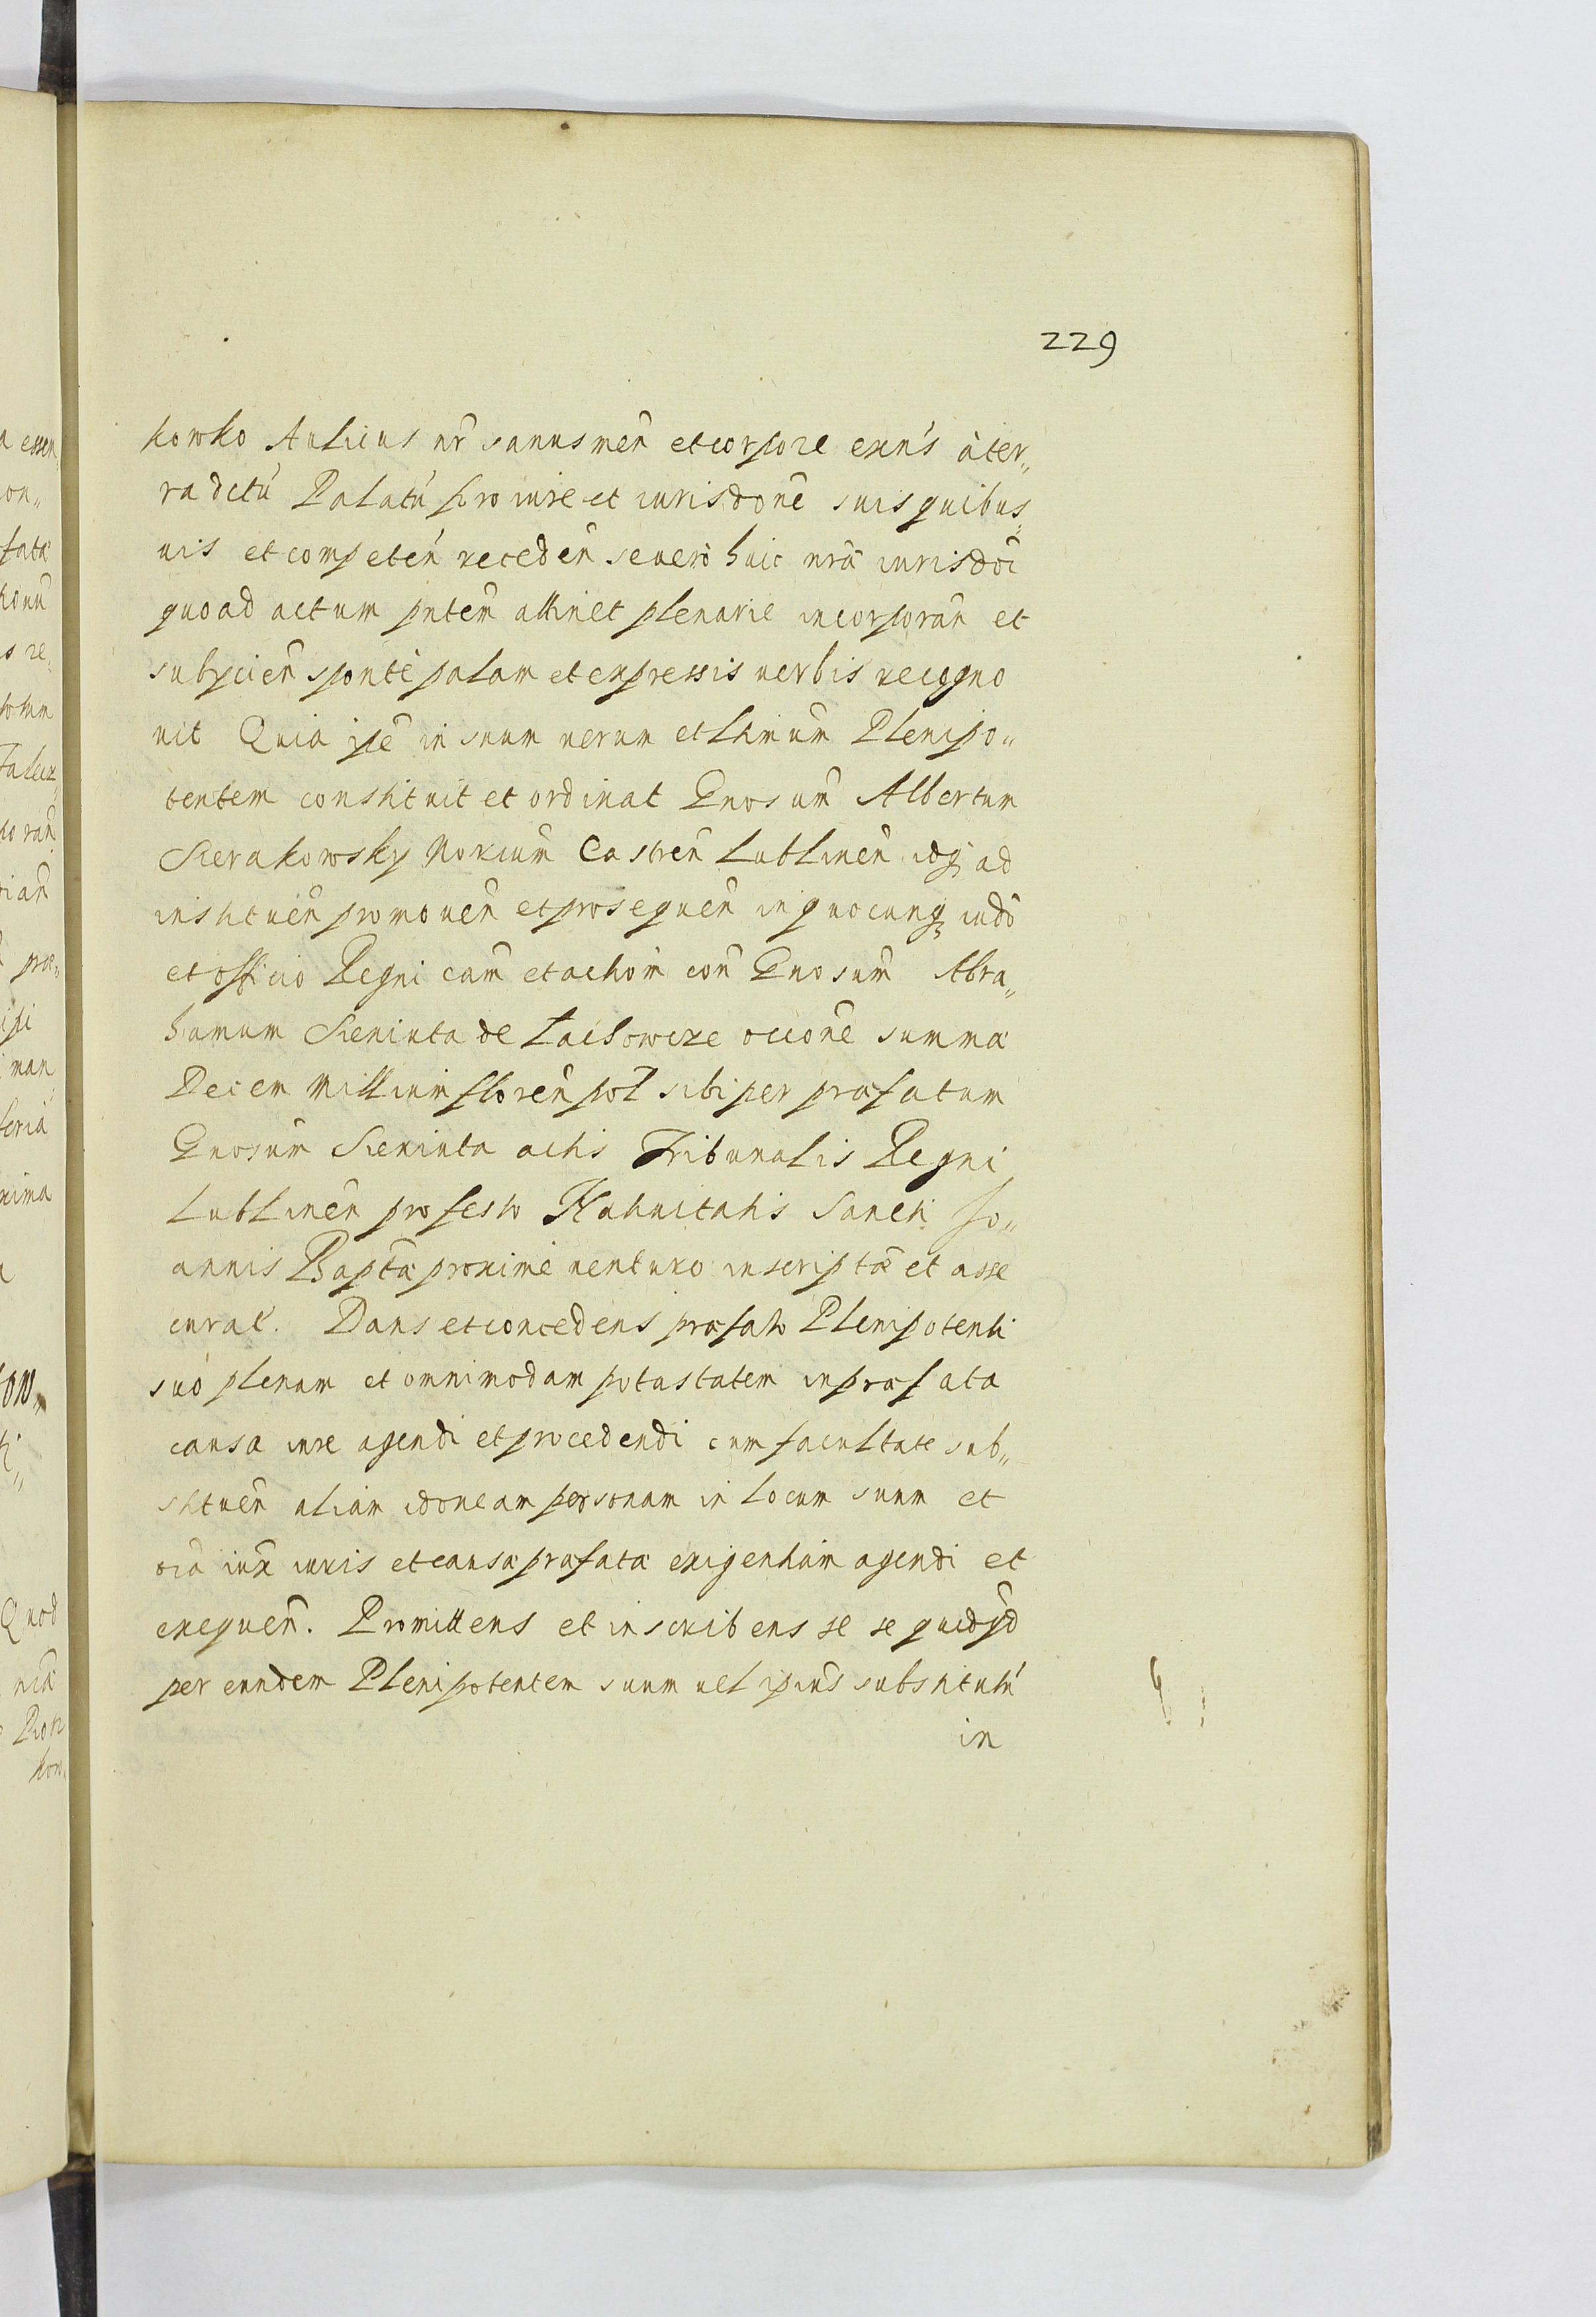 229
kowko Aulicus nr̃ sanus men̄ et corpore exn̄s à ter„
ra dctũ Palatũ pro iure et iurisdõne suis quibus„
uis et competen̄ receden̄ se uerò huic nr̃æ iurisdõi
quoad actum pn̄tem attinet plenarie incorporan̄ et
subycien̄ spontè palam et expressis uerbis recogno
uit Quia ipẽ in suum uerum et lt̃imum Plenipo„
tentem constituit et ordinat Gnosum Albertum
Sierakowsky Norium̃ Castren̄ Lublinen̄ idq; ad
instituen̄ promouen̄ et prosequen̄ in quocunq; iudõ
et officio Regni cam̄ et actiom̄ con̄ Gnosum Abra„
hamum Sieniuta de Lachowcze ocione summæ
Decem Millium floren̄ pol̃ sibi per præfatum
Gnosum Sieniuta actis Tribunalis Regni
Lublinen̄ pro festo Natiuitatis Sancti Jo„
annis Baptæ proxime uenturo inscriptæ et asse
curat̃. Dans et concedens præfato Plenipotenti
suo plenam et omnimodam potastatem in præfata
causa iure agendi et procedendi cum facultate sub„
stituen̄ aliam idoneam personam in locum suum et
oĩa iux̃ iuris et causæ præfatæ exigentiam agendi et
exequen̄. Promittens et inscribens se se quidqd̃
per eundem Plenipotentem suum uel ipius substitutũ
in